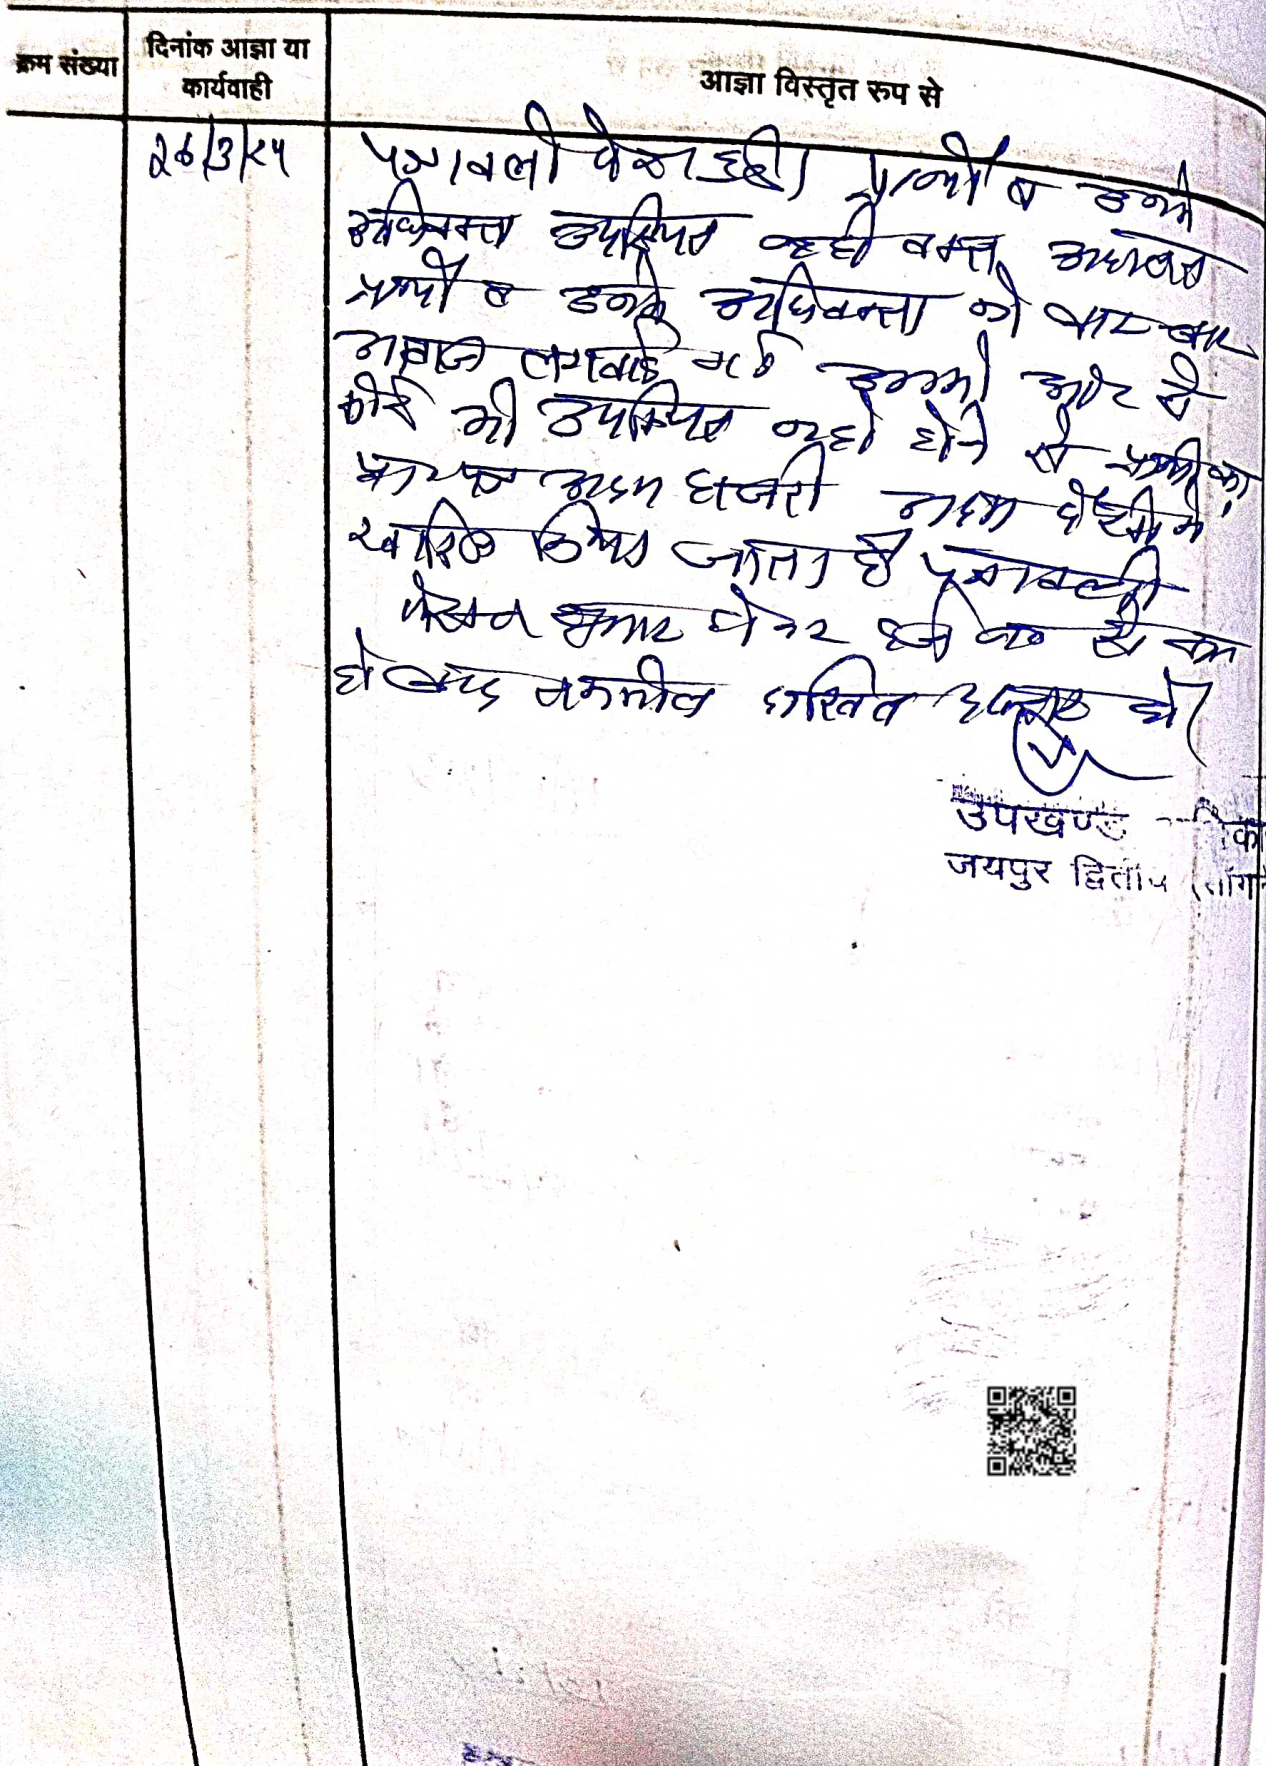 क्रम संख्या
दिनांक आज्ञा या
कार्यवाही
आज्ञा विस्तृत रुप से
पत्रावली पेश हुई। प्रार्थी व उनके
अधिवक्ता उपस्थित नहीं वक्त अदालत
प्रार्थी व उनके अधिवक्ता को बार बार
आवाज लगवाई गई उनकी ओर से
कोई भी उपस्थित नहीं होने से प्रार्थी का
प्रा पत्र अदम हाजरी अदम पैरवी में
खारिज किया जाता है पत्रावली
फैसल शुमार होकर नम्बर से कम
हो बाद तकमील दाखिल दफ्तर हो।
उपखण्ड
जयपुर द्वितीय